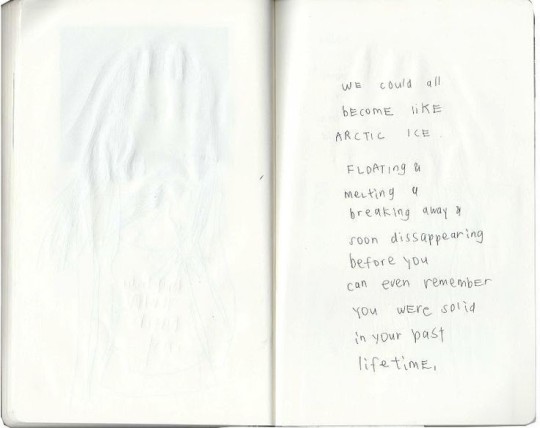 WE could all
bECOME liKE
ARCTIC ICE.
FLOATing &
meLting &
breaking away &
soon dissappearing
before you
can even remember
YOU WERE solid
in your past
lifetimE.